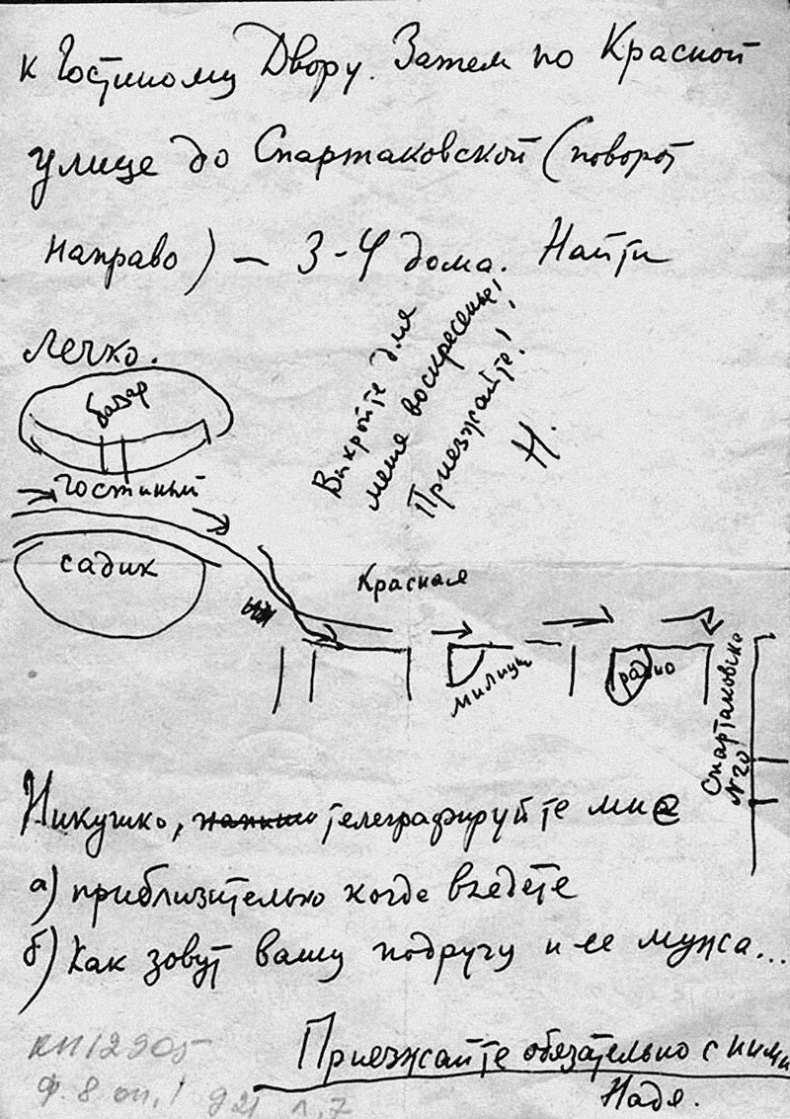 к Гостиному Двору. Затем по Красной
улице до Спартаковской (поворот
направо) — 3-4 дома. Найти
легко.
Выкройте для
меня воскресенье!
Приезжайте!
Н.
базар
Гостиный
садик
Красная
милиция
радио
Спартаковская
N 20
Никушко, телеграфируйте мне
а) приблизительно когда въедете
б) Как зовут вашу подругу и ее мужа...
Приезжайте обязательно с ними
Надя.
КП 12905
Ф. 8 оп. 1 д 21 л. 7